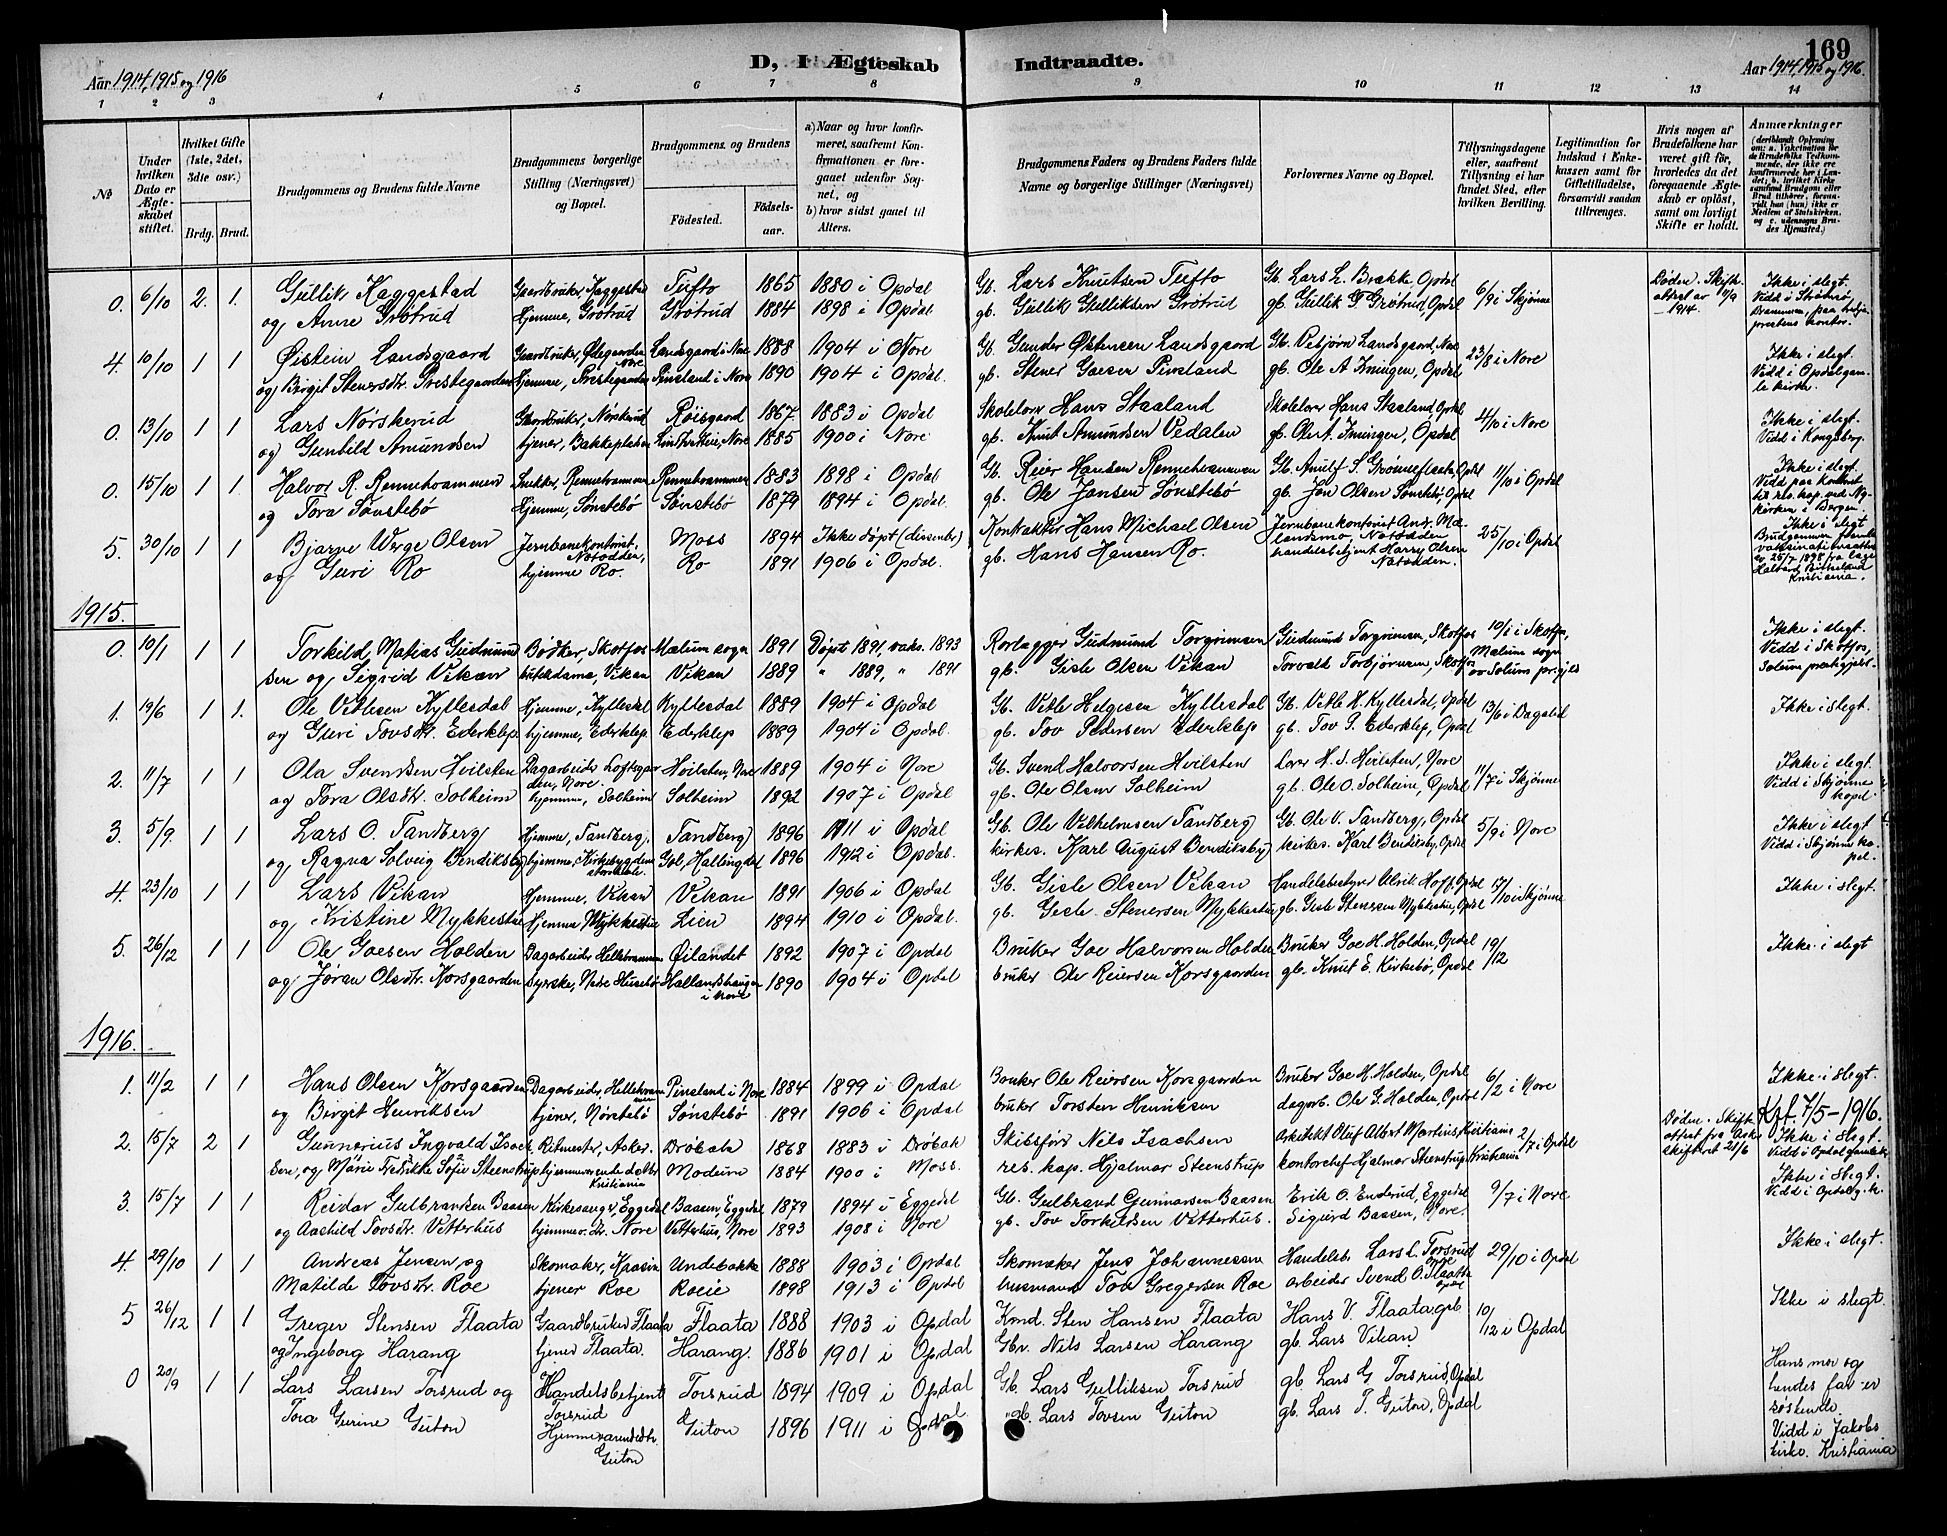 169
D, I. Ægteskab Indtraadte.
Aar 1914, 1915 og 1916
Aar 1914, 1915 og 1916.
1 2 3 4 5 6 7 8 9 10 11 12 13 14
No
Under hvilken Dato er Ægteskabet stiftet.
Hvilket Gifte (1ste, 2det, 3die osv.)
Brdg. Brud.
Brudgommens og Brudens fulde Navne
Brudgommens borgerlige Stilling (Næringsvei) og Bopæl.
Brudgommens og Brudens
Fødested.
Fødselsaar.
a) Naar og hvor konfirmeret, saafremt Konfirmationen er foregaaet udenfor Sognet, og
b) hvor sidst gaaet til Alters.
Brudgommens Faders og Brudens Faders fulde Navne og borgerlige Stillinger (Næringsvei)
Forlovernes Navne og Bopæl.
Tillysningsdagene eller, saafremt Tillysning ei har fundet Sted, efter hvilken Bevilling.
Legitimation for Indskud i Enkekassen samt for Giftetilladelse, forsaavidt saadan tiltrænges.
Hvis nogen af Brudefolkene har været gift før, hvorledes da det foregaaende Ægteskab er opløst, samt om lovligt Skifte er holdt.
Anmærkninger
0. 6/10 2. 1. Gullik Kaggestad Gaardbruker, Kaggestad Tufto 1865 1880 i Opdal Gb. Lars Knutsen Tufto Gb. Lars L. Brække, Opdal 6/9 i Skjønne Døden. Skifteattest av 17/9 – 1914. Ikke i slegt.
og Anne Grötrud Hjemme, Grötrud Grötrud 1884 1898 i Opdal gb. Gullik Gulliksen Grötrud gb. Gullik G. Grötrud, Opdal
4. 10/10 1 1 Øistein Landsgaard Gaardbruker, Øiegaarden Nore Landsgaard i Nore 1888 1904 i Nore Gb. Gunder Østensen Landsgaard Gb. Vebjörn Landsgaard, Nore 23/8 i Nore Ikke i slegt. Vidd i Opdal gamle kirke.
og Birgit Stenersdtr. Prestegaarden Hjemme, Prestegaarden Pinsland i Nore 1890 1904 i Opdal. gb. Stener Goesen Pinsland gb. Ole A. Imingen, Opdal
0. 13/10 1 1 Lars Nørskerud Gaardbruker, Nørskerud Röisgaard 1867 1883 i Opdal Skolelærer Hans Staaland Skolelærer Hans Staaland, Opdal 4/10 i Nore Ikke i slegt. Vidd i Kongsberg.
og Gunhild Amundsen tjener, Bakkepladsen 1885 1900 i Nore gb. Knut Amundsen Vedalen gb. Ole A. Imingen, Opdal
0. 15/10 1 1. Halvor R. Rennehvammen Snekker, Rennehvammen Rennehvammen 1883 1898 i Opdal Gb. Reier Hansen Rennehvammen Gb. Anulf S. Grønneflaata, Opdal 11/10 i Opdal Ikke i slegt.
og Tora Sønstebø Hjemme, Sønstebø Sønstebø 1879 1894 i Opdal. gb. Ole Jansen Sønstebø gb. Jon Olsen Sønstebø, Opdal
5. 30/10 1 1 Bjarne Werge Olsen Jernbanekontorist, Notodden, Moss 1894 Ikke døpt (dissenter) Kontraktør Hans Michael Olsen Jernbanekontorist And. Mælandsmo, Notodden 25/10 i Opdal Ikke i slegt.
og Guri Ro hjemme Ro. Ro 1891 1906 i Opdal. gb. Hans Hansen Ro. handelsbetjent Harry Olsen Notodden.
1915.
0. 10/1 1 1 Torkild Matias Gudmundsen Bødker, Skotfos Mælum sogn 1891 Døpt 1891, vaks. 1893 Rørlægger Gudmund Torgrimsen Gudmund Torgrimsen, Skotfos 10/1 i Skotfos, Mælum sogn av Solum prgjeld Ikke i slegt. Vidd i Skotfos, Solum prestegjeld.
og Sigrid Vikan Vikan Vikan 1889 " 1889, " 1891 gb. Gisle Olsen Vikan Torvald Torbjørnsen, Skotfos
1. 19/6 1 1. Ole Vetlesen Kyllesdal Hjemme, Kyllesdal Kyllesdal 1889 1904 i Opdal Gb. Vetle Helgesen Kyllesdal Gb. Vetle H. Kyllesdal, Opdal 13/6 i Dagalid Ikke i slegt.
og Guri Tovsdtr. Ederklep hjemme, Ederklep Ederklep 1889 1904 i Opdal. gb. Tov Pedersen Ederklep gb. Tov P. Ederklep, Opdal
2. 11/7 1 1 Ola Svendsen Hvilsten Dagarbeider Loftsgaarden, Nore. Hvilsten, Nore 1889 1904 i Nore Gb. Svend Halvorsen Hvilsten Lærer H. S. Hvilsten, Nore 11/7 i Skjønne Ikke i slegt. Vidd i Skjønne kapel
og Tora Olsdtr. Solheim hjemme, Solheim Solheim 1892 1907 i Opdal gb. Ole Olsen Solheim gb. Ole O. Solheim, Opdal
3. 5/9. 1 1 Lars O. Tandberg Hjemme, Tandberg, Tandberg 1896 1911 i Opdal Gb. Ole Vilhelmsen Tandberg Gb. Ole V. Tandberg, Opdal 5/9 i Nore Ikke i slegt Vidd i Skjønne kapel.
og Ragna Solveig Bendiksby hjemme, Kirkebygden Gol, Hallingdal 1896 1912 i Opdal. kirkes. Karl August Bendiksby kirkes. Karl Bendiksby, Opdal
4. 23/10 1 1 Lars Vikan Hjemme, Vikan Vikan 1891 1906 i Opdal Gb. Gisle Olsen Vikan Handelsbestyrer Ulrik Hoff, Opdal 17/10 i Skjønne Ikke i slegt
og Kristine Mykkestue Hjemme Mykkestue Lien 1894 1910 i Opdal. gb. Gisle Stenersen Mykkestue gb. Gisle Stenersen Mykkestue, Opdal
5. 26/12 1 1 Ole Goesen Holden Dagarbeider Hellehvammen Øilandet 1892 1907 i Opdal Bruker Goe Halvorsen Holden Bruker Goe H. Holden, Opdal 19/12 Ikke i slegt
og Jøran Olsdtr. Korsgaarden Syerske, Nedre Husebø Hallandshaugen i Nore 1890 1904 i Opdal bruker Ole Reiersen Korsgaarden gb. Knut E. Kirkebø, Opdal
1916.
1. 11/2 1 1 Hans Olsen Korsgaarden Dagarbeider, Hellehvammen Pinsland i Nore 1884 1899 i Opdal Bruker Ole Reiersen Korsgaarden Bruker Goe H. Holden, Opdal 6/2 i Nore Ikke i slegt.
og Birgit Henriksen tjener, Nørstebø Sønstebø 1891 1906 i Opdal bruker Torsten Henriksen dagarb. Ole G. Holden, Opdal Kpf. 7/5 – 1916.
2. 15/7 2 1 Gunnerius Ingvald Isachsen, Ritmester, Asker. Drøbak 1868 1883 i Drøbak Skibsfører Nils Isachsen Arkitekt Oluf Albert Martins, Kristiania 2/7 i Opdal Døden. Skifteattest fra Asker skifteret 21/6 Ikke i slegt. Vidd i Opdal gamle k.
og Marie Fredrikke Sofie Steenstrup hjemmeværende datter Kristiania Modum 1884 1900 i Moss. res. kap. Hjalmar Steenstrup kontorchef Hjalmar Steenstrup, Kristiania
3. 15/7 1 1 Reidar Gulbrandsen Baasen Kirkesanger, Eggedal Baasen, Eggedal 1879 1894 i Eggedal Gb. Gulbrand Gunnarsen Baasen Erik O. Enderud, Eggedal 9/7 i Nore Ikke i slegt Vidd i Opdal g. k.
og Aashild Tovsdtr. Vetterhus hjemmev. dtr. Nore Vetterhus, Nore 1893 1908 i Nore gb. Tov Torkildsen Vetterhus. Sigurd Baasen, Nore.
4. 29/10 1 1 Andreas Jensen og Skomaker, Kraasin Undebakke 1888 1903 i Opdal Skomaker Jens Johannessen Handelsb. Lars L. Torsrud Opdal 29/10 i Opdal Ikke i slegt.
Matilde Tovsdtr. Roe tjener Roe Roeie 1898 1913 i Opdal husmand Tov Gregersen Roe arbeider Svend O. Flaata Opdal
5 26/12 1 1 Greger Stensen Flaata Gaardbruker Flaata Flaata 1888 1903 i Opdal Kmd. Sten Hansen Flaata Hans V. Flaata gb 10/12 i Opdal Ikke i slegt.
og Ingeborg Harang tjener Flaata. Harang. 1886 1901 i Opdal Gbr. Nils Larsen Harang gb. Lars Vikan
0 20/9 1 1 Lars Larsen Torsrud og Handelsbetjent Torsrud Torsrud 1894 1909 i Opdal Gb. Lars Gulliksen Torsrud gb Lars G Torsrud, Opdal Hans mor og hendes far er søskende. Vidd i Jakobs kirke. Kristiania
Tora Gurine Guton Hjemmeværende dtr Guton Guton 1896 1911 i Opdal gb. Lars Tovsen Guton gb. Lars T. Guton, Opdal